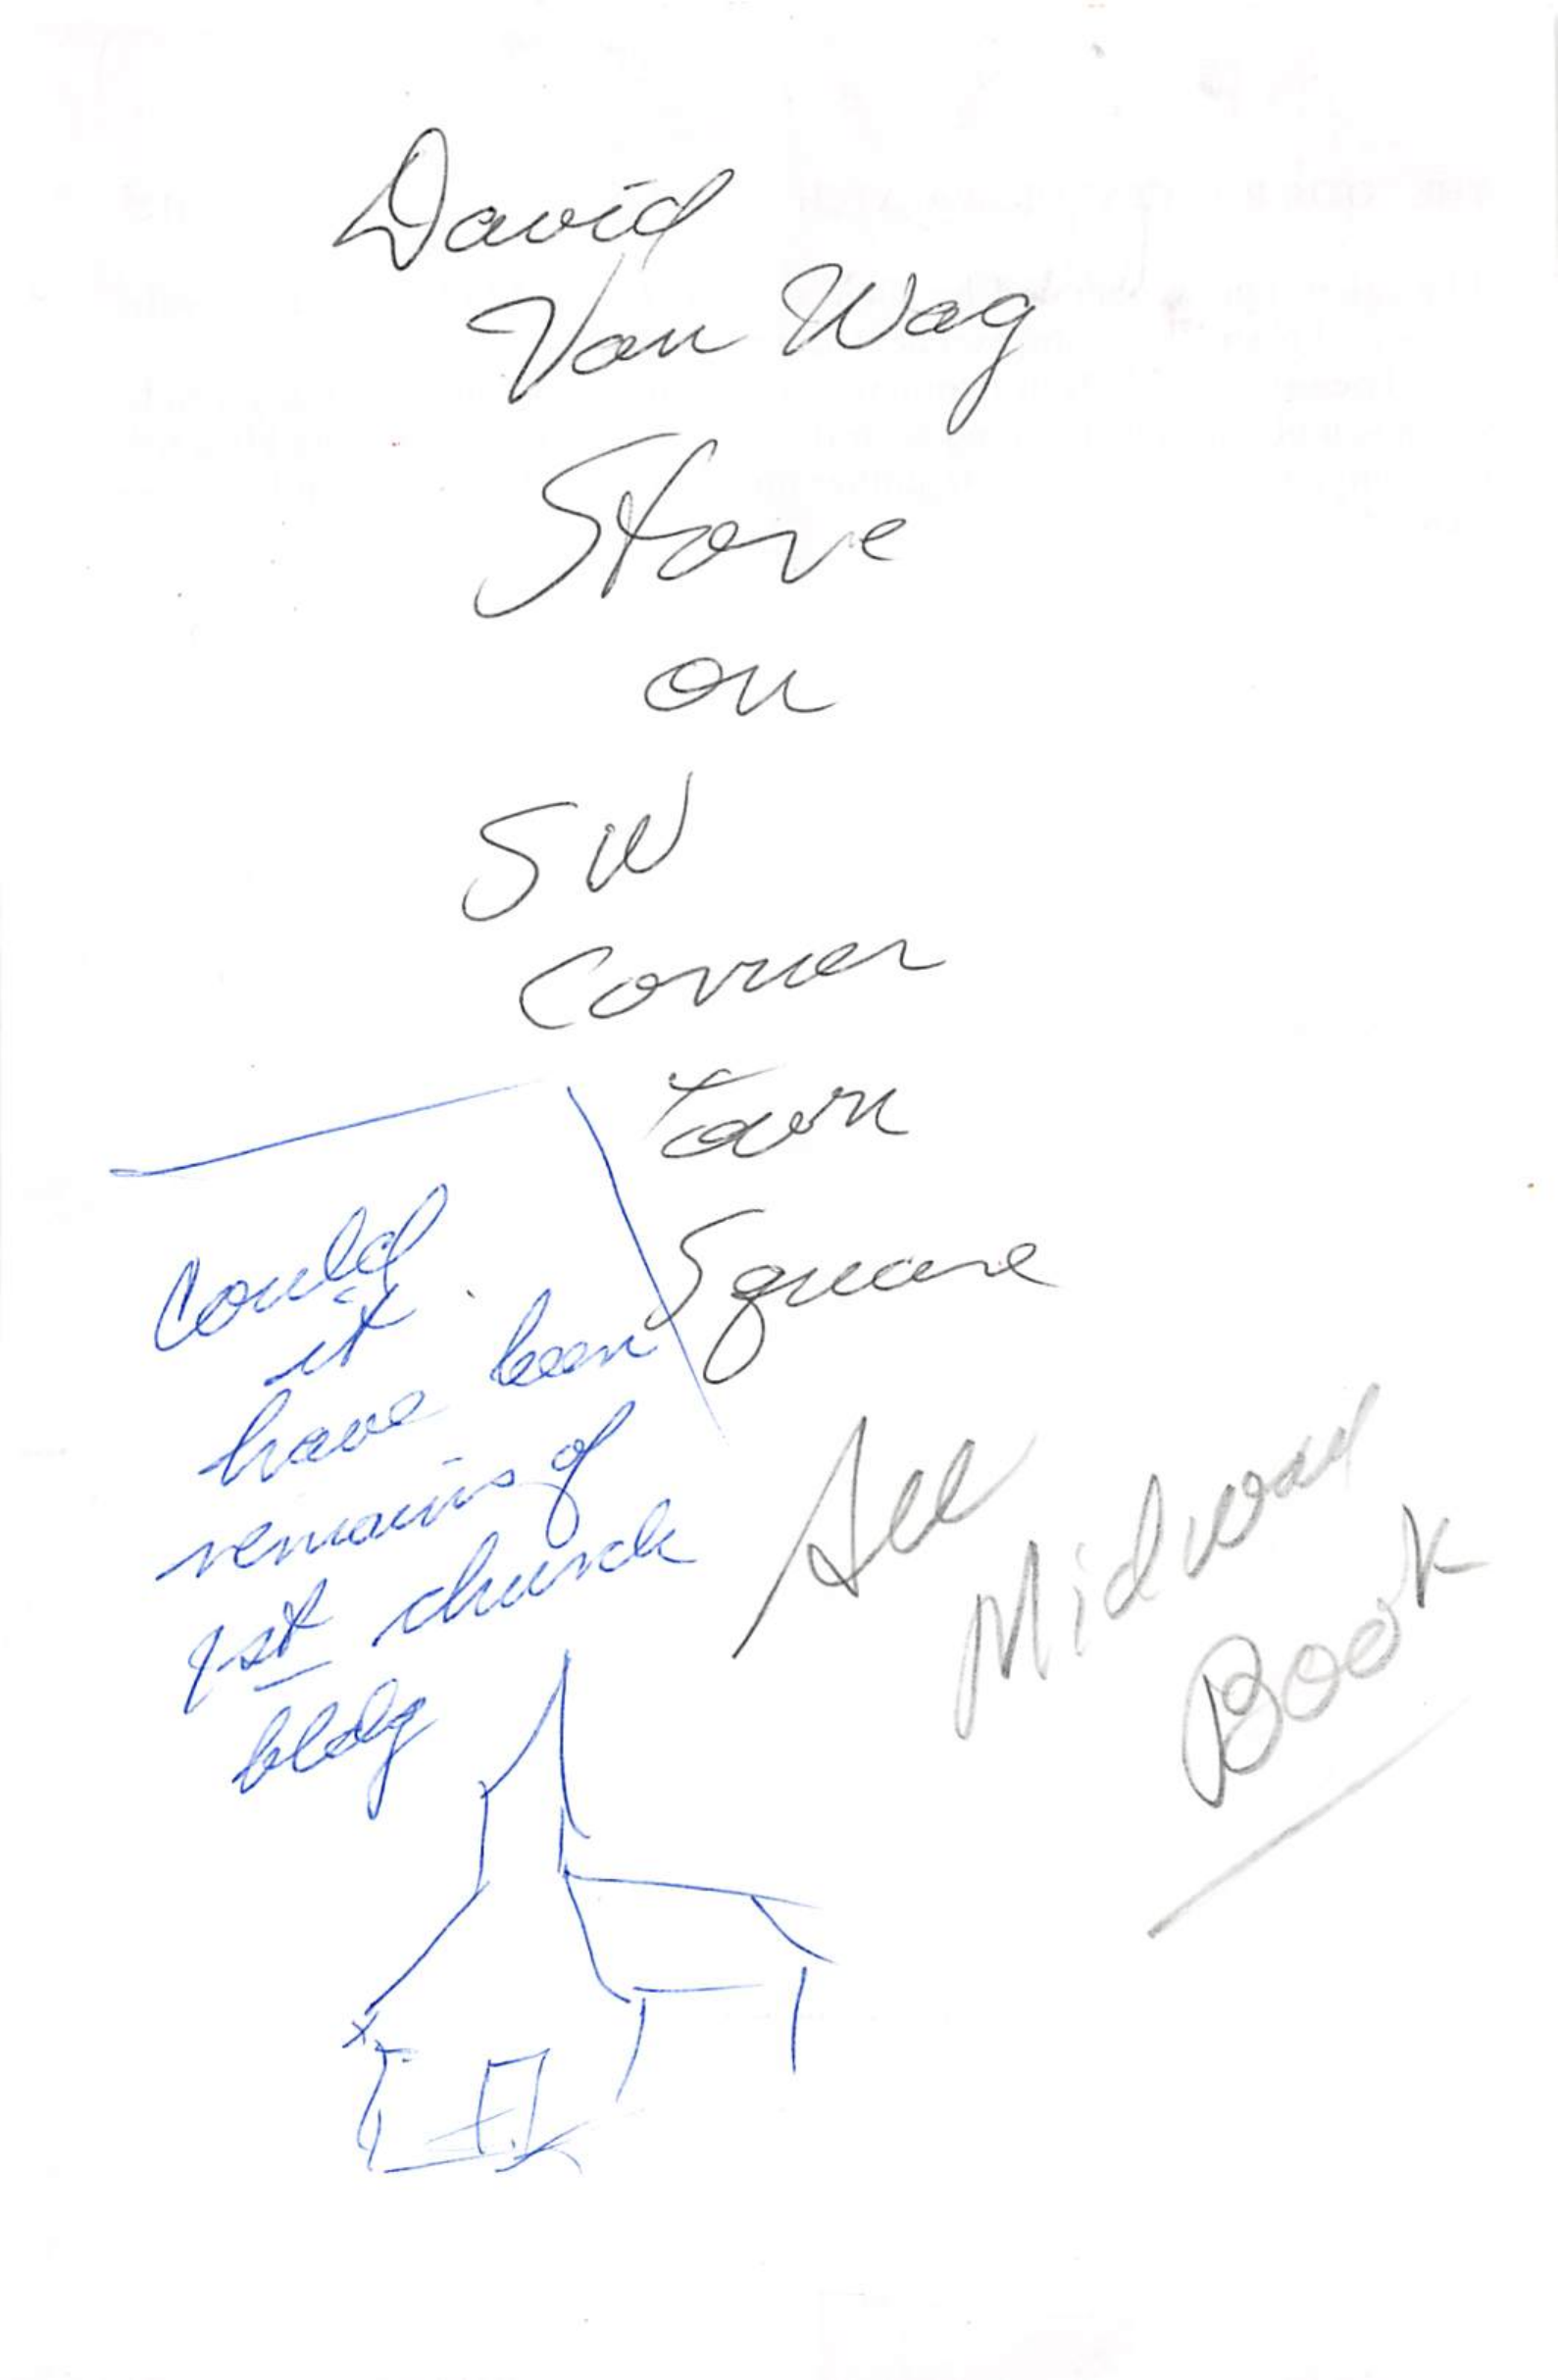 David
Van Wag
Store
on
SW
Corner
town
Square
Could
it
have been
remains of
1st church
bldg
See
Midway
Book